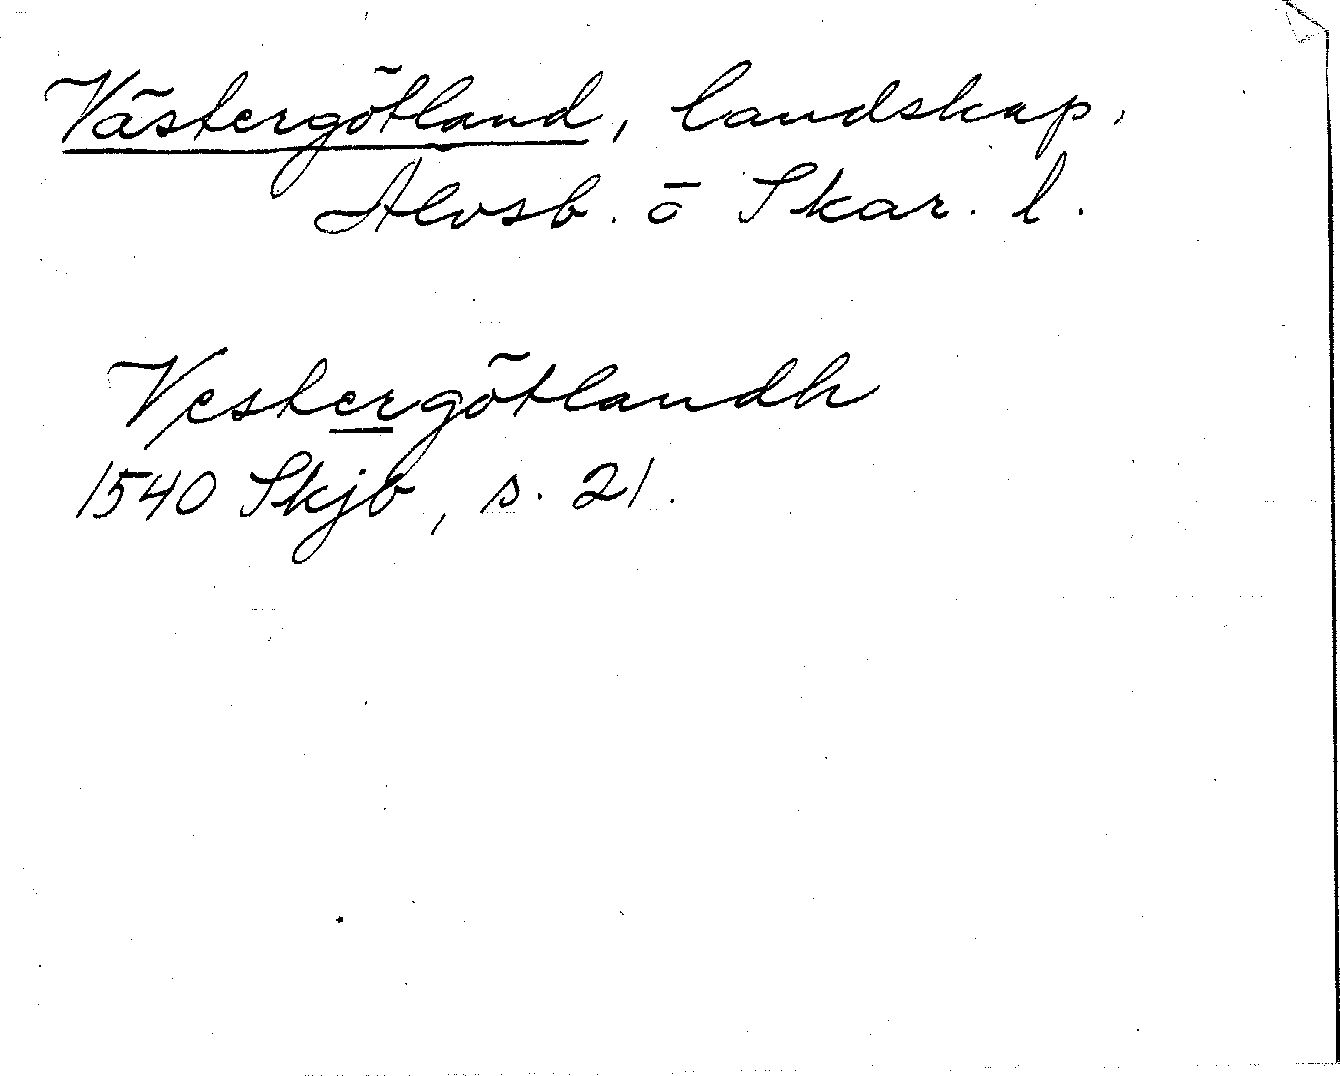 Västergötland, landskap,
Älvsb. o Skar. l.
Vestergötlandh
1540 Skjb, s. 21.